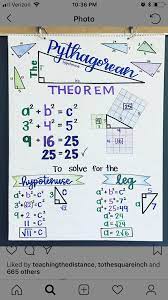 Verizon 10:36 PM
Photo
The Pythagorean
THEOREM
a² + b² = c²
3² + 4² = 5²
9 + 16 = 25
25 = 25 ✓
To solve for the
hypotenuse
leg
a² + b² = c²
9 + 2 = C²
11 = C²
√11 = C
a² + b² = c²
a² + 5² = 7²
a² + 25 = 49
a² = 24
a = √24
a = 2√6
Liked by teachingthedistance, tothesquareinch and
665 others